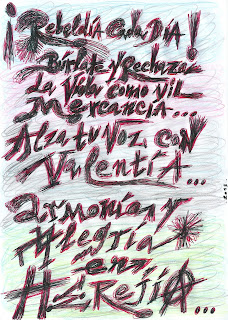 ¡Rebeldía Cada Día!
Búrlate y Rechaza
La Vida como vil
Mercancía...
Alza tu Voz con
Valentía...
Armonía y
Alegría
en
Herejía...